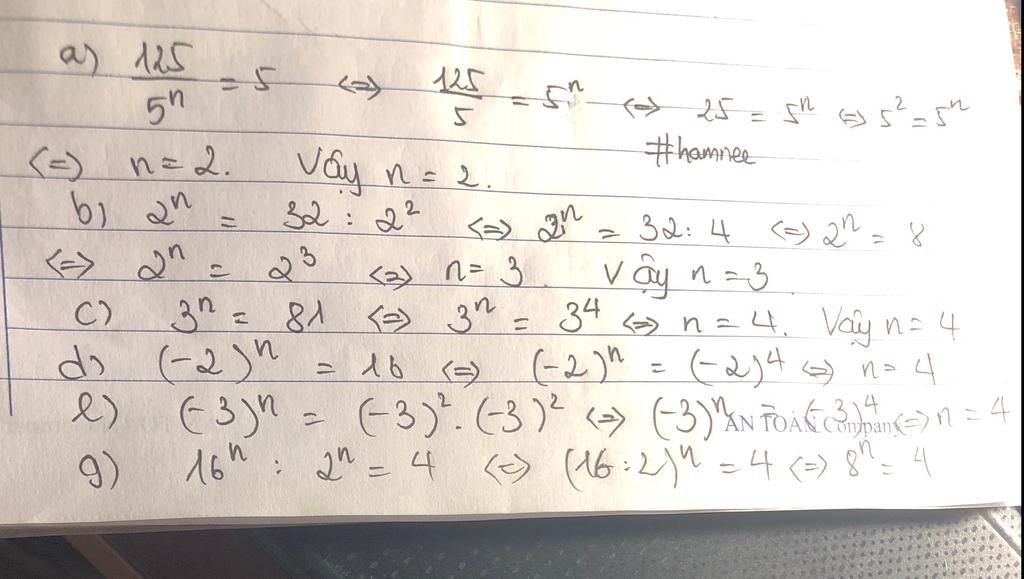 a) 125/5ⁿ = 5 <=> 125/5 = 5ⁿ <=> 25 = 5ⁿ <=> 5² = 5ⁿ
#hamnee
<=> n = 2. Vậy n = 2.
b) 2ⁿ = 32 : 2² <=> 2ⁿ = 32 : 4 <=> 2ⁿ = 8
<=> 2ⁿ = 2³ <=> n = 3. Vậy n = 3
c) 3ⁿ = 81 <=> 3ⁿ = 3⁴ <=> n = 4. Vậy n = 4
d) (-2)ⁿ = 16 <=> (-2)ⁿ = (-2)⁴ <=> n = 4
e) (-3)ⁿ = (-3)² . (-3)² <=> (-3)ⁿ = (-3)⁴ <=> n = 4
AN TOÀN Company
g) 16ⁿ : 2ⁿ = 4 <=> (16 : 2)ⁿ = 4 <=> 8ⁿ = 4